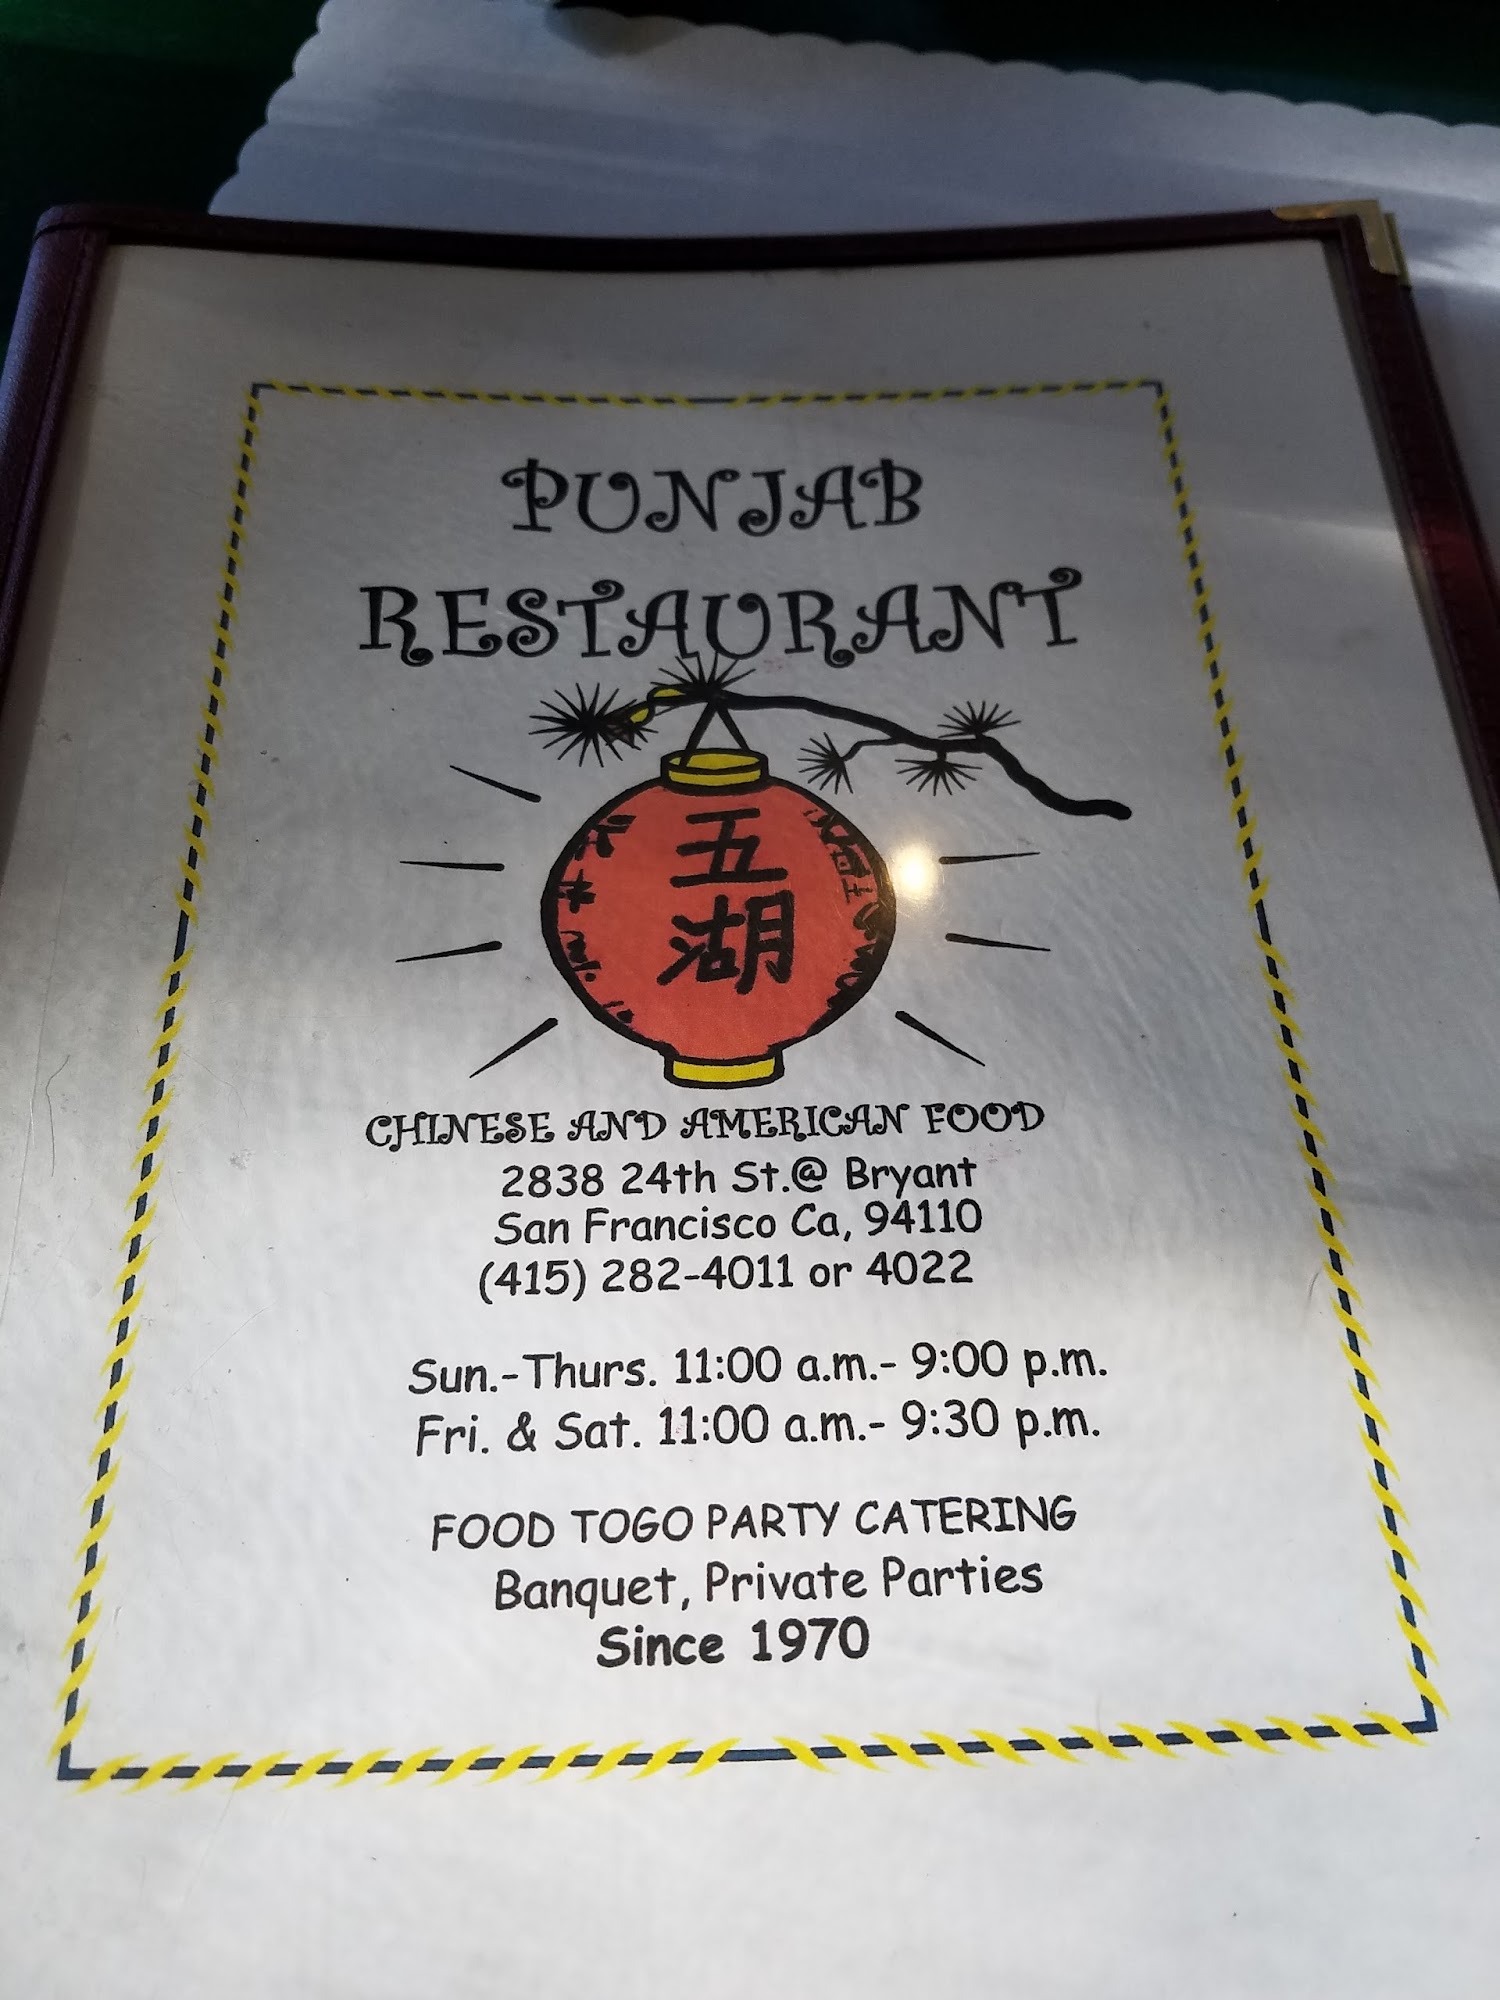 PUNJAB
RESTAURANT
五
湖
CHINESE AND AMERICAN FOOD
2838 24th St.@ Bryant
San Francisco Ca, 94110
(415) 282-4011 or 4022
Sun.-Thurs. 11:00 a.m.- 9:00 p.m.
Fri. & Sat. 11:00 a.m.- 9:30 p.m.
FOOD TOGO PARTY CATERING
Banquet, Private Parties
Since 1970